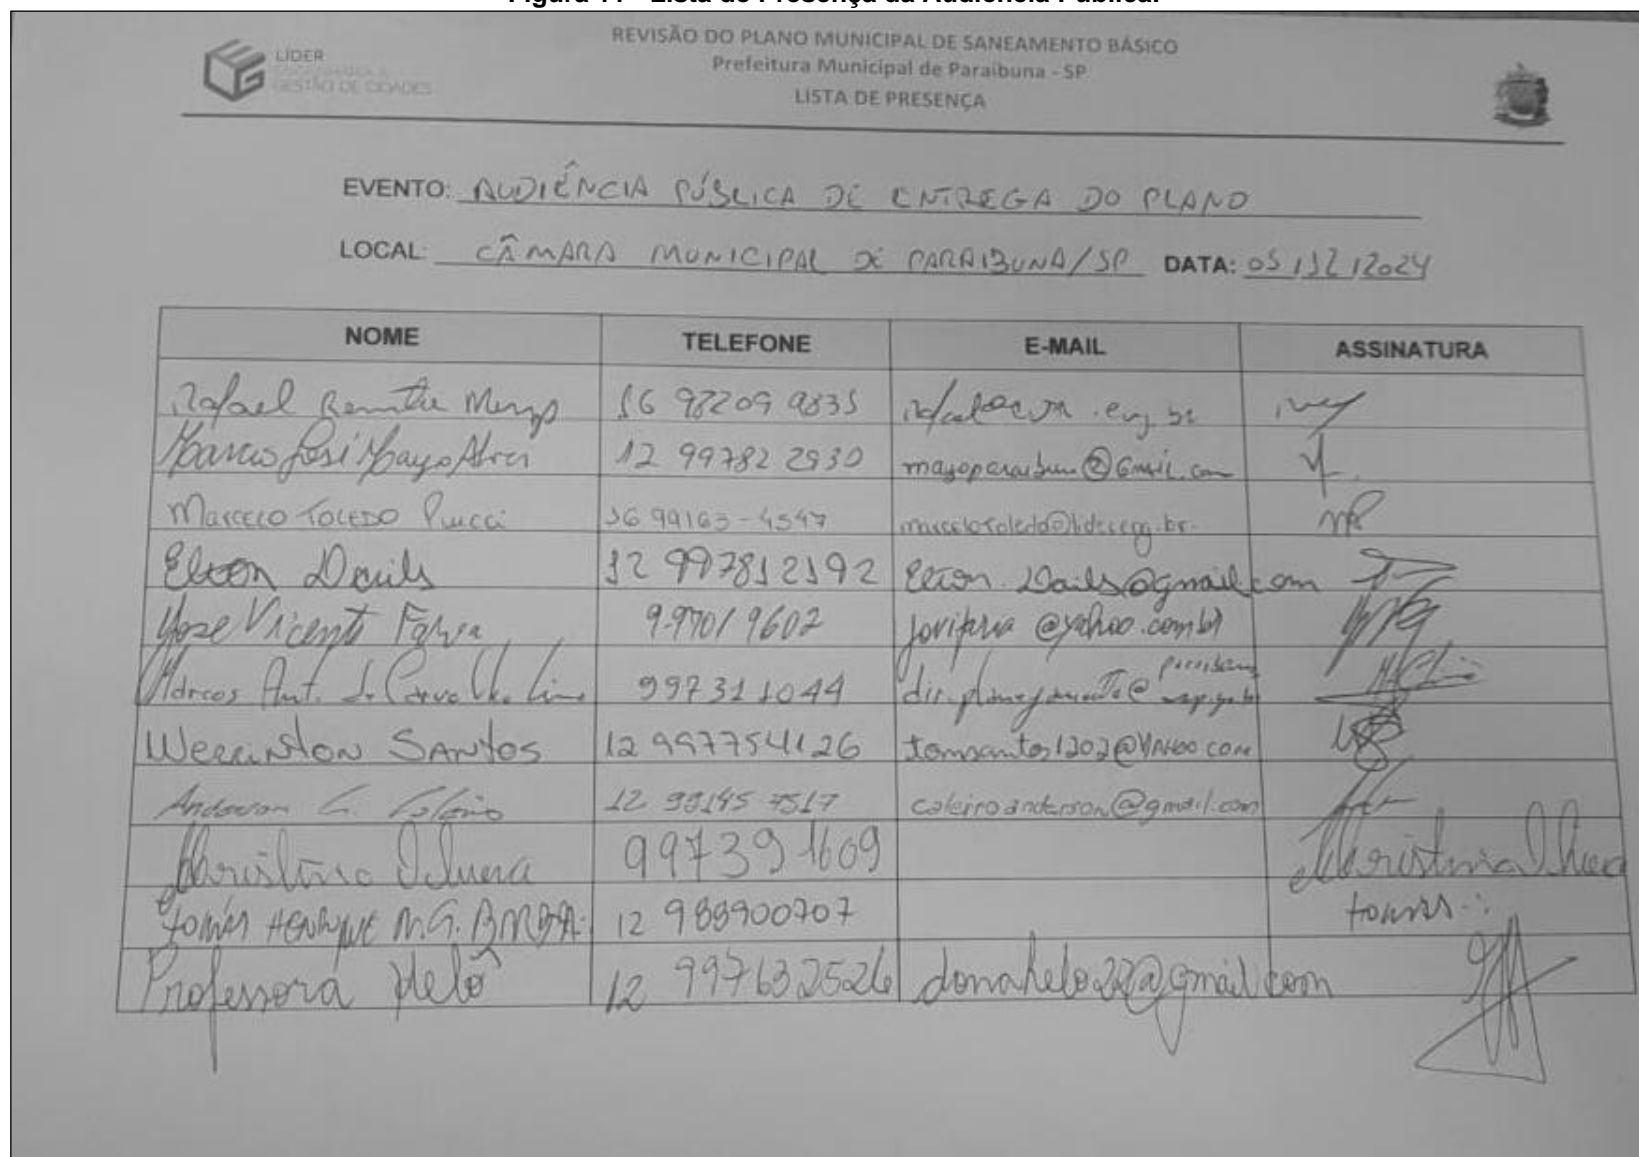 Figura 11 - Lista de Presença da Audiência Pública.
LÍDER
GESTÃO DE CIDADES
REVISÃO DO PLANO MUNICIPAL DE SANEAMENTO BÁSICO
Prefeitura Municipal de Paraibuna - SP
LISTA DE PRESENÇA
EVENTO: AUDIÊNCIA PÚBLICA DE ENTREGA DO PLANO
LOCAL: CÂMARA MUNICIPAL DE PARAIBUNA/SP DATA: 05/12/2024
NOME TELEFONE E-MAIL ASSINATURA
Rafael 16 98209 9835 .eng.br
Marcio José Mayo Alves 12 99782 2930 mayoparaibuna@Gmail.com
Marcelo Toledo Pucci 16 99163-4547
Elton Davils 12 997812192 Elton.Davils@gmail.com
José Vicente Faria 9.9701 9602 jovifaria@yahoo.com.br
Marcos Ant. de Carvalho Lima 997311044
Wellington Santos 12 997754126 tomsantos1202@YAHOO.COM
Anderson C. Caleiro 12 98145 7517 caleiroanderson@gmail.com
Christina Oliveira 997391609 Christina Oliveira
Tomás Henrique M.G. 12 988900707 Tomás
Professora Helô 12 997632526 donahelo22@gmail.com